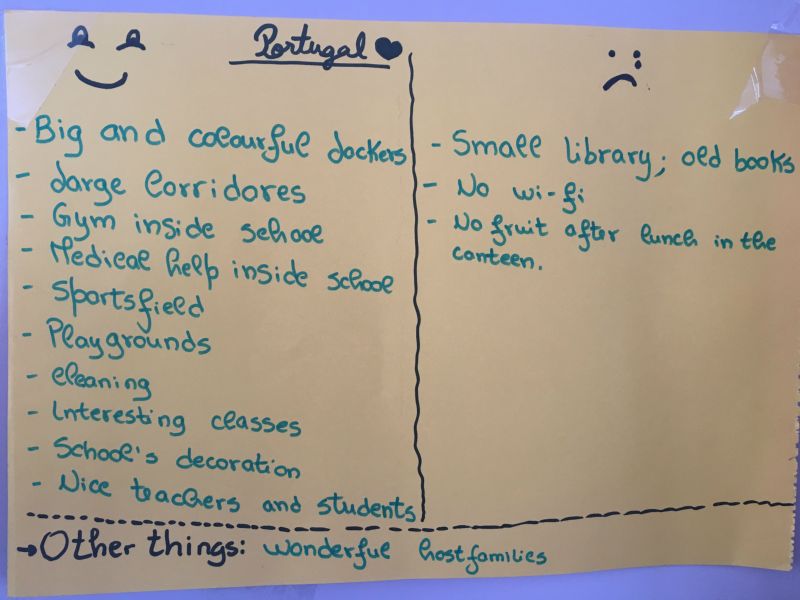 Portugal
- Big and colourful lockers
- Large corridores
- Gym inside school
- Medical help inside school
- Sportsfield
- Playgrounds
- cleaning
- Interesting classes
- School's decoration
- Nice teachers and students
- Small library; old books
- No wi-fi
- No fruit after lunch in the
canteen.
→Other things: wonderful hostfamilies